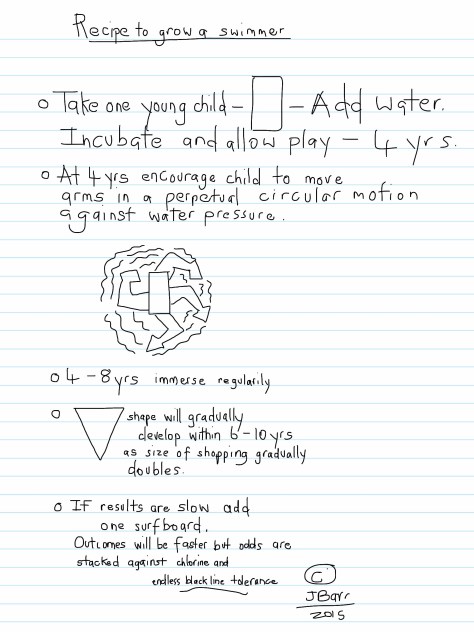 Recipe to grow a swimmer
Take one young child - - Add water.
Incubate and allow play - 4 yrs.
At 4 yrs encourage child to move
arms in a perpetual circular motion
against water pressure.
4 - 8 yrs immerse regularily
shape will gradually
develop within 6-10 yrs
as size of shopping gradually
doubles.
If results are slow add
one surfboard.
Outcomes will be faster but odds are
stacked against chlorine and
endless black line tolerance
©
JBarr
2015